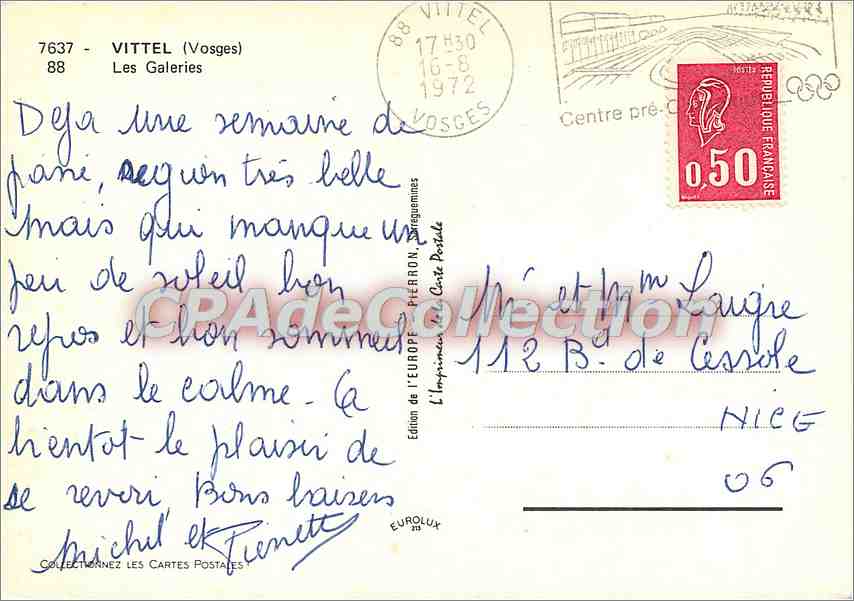 7637 - VITTEL (Vosges)
88 Les Galeries
88 VITTEL
17H30
16-8
1972
VOSGES
Centre pré-
POSTES
REPUBLIQUE FRANÇAISE
0,50
Deja une semaine de
passé, region très belle
mais qui manque un
peu de soleil bon
repos et bon sommeil
dans le calme - a
bientot le plaisir de
se revoir, Bons baisers
Michel et Pierrette
COLLECTIONNEZ LES CARTES POSTALES
Edition de l'EUROPE - PIERRON, Sarreguemines
L'Imprimeur de la Carte Postale
CPAdeCollection
Mr et Mm Laugre
112 Bd de Cessole
NICE
06
EUROLUX
213